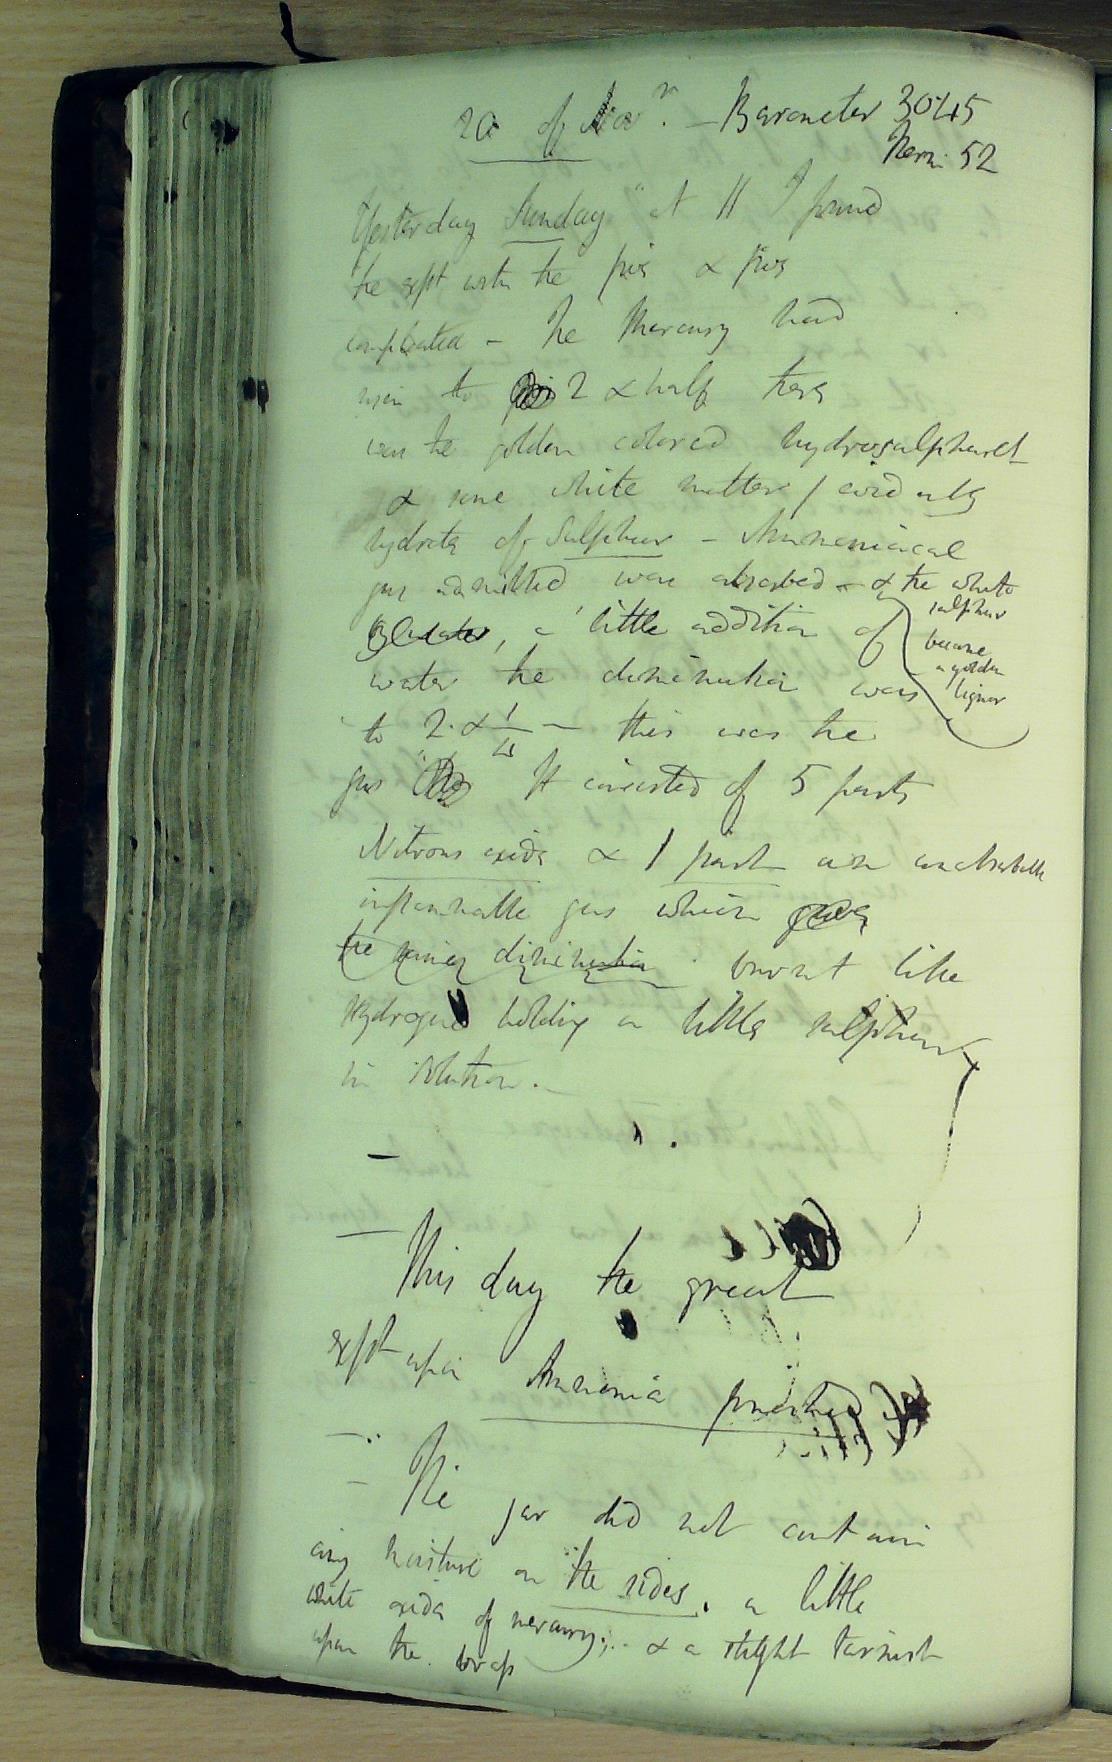 20 of Nov.r - Barometer 30.45
Therm. 52
Yesterday Sunday at 11 I found
the expt with the
completed - The Mercury had
risen to 2 & half there
was the golden colored hydrosulphuret
& some white matter / evidently
hydrate of Sulphur - Ammoniacal
gas admitted was absorbed - & the white
sulphur
became
a golden
liquor
a little addition of
water the diminution was
to 2. & 1/4 - this was the
gas It consisted of 5 parts
Nitrous oxide & 1 part an
inflammable gas which gave
the diminution burnt like
Hydrogene holding a little sulphur
in solution. -
This day the great
expt upon Ammonia finished
- The jar did not contain
any moisture on the sides, a little
white oxide of mercury; & a slight tarnish
upon the brass